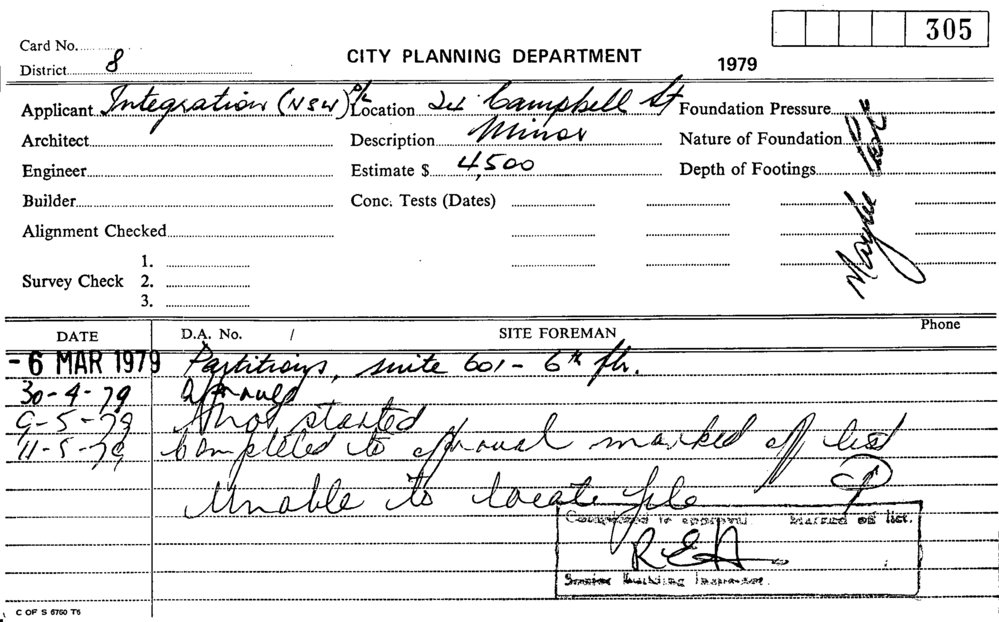 305
Card No.
District 8
CITY PLANNING DEPARTMENT
1979
Applicant Integration (NSW) P/L
Location 24 Campbell St
Foundation Pressure
Architect
Description Minor
Nature of Foundation
Engineer
Estimate $ 4,500
Depth of Footings
Builder
Conc. Tests (Dates)
Alignment Checked
Survey Check
1.
2.
3.
DATE
D.A. No. /
SITE FOREMAN
Phone
- 6 MAR 1979 Partitions, suite 601 - 6th flr.
30-4-79 approved
9-5-79 not started
11-5-79 Completed to approval marked off list
Unable to locate file
Completed to approval Marked off list.
REA
Senior Building Inspector.
C OF S 6750 T6